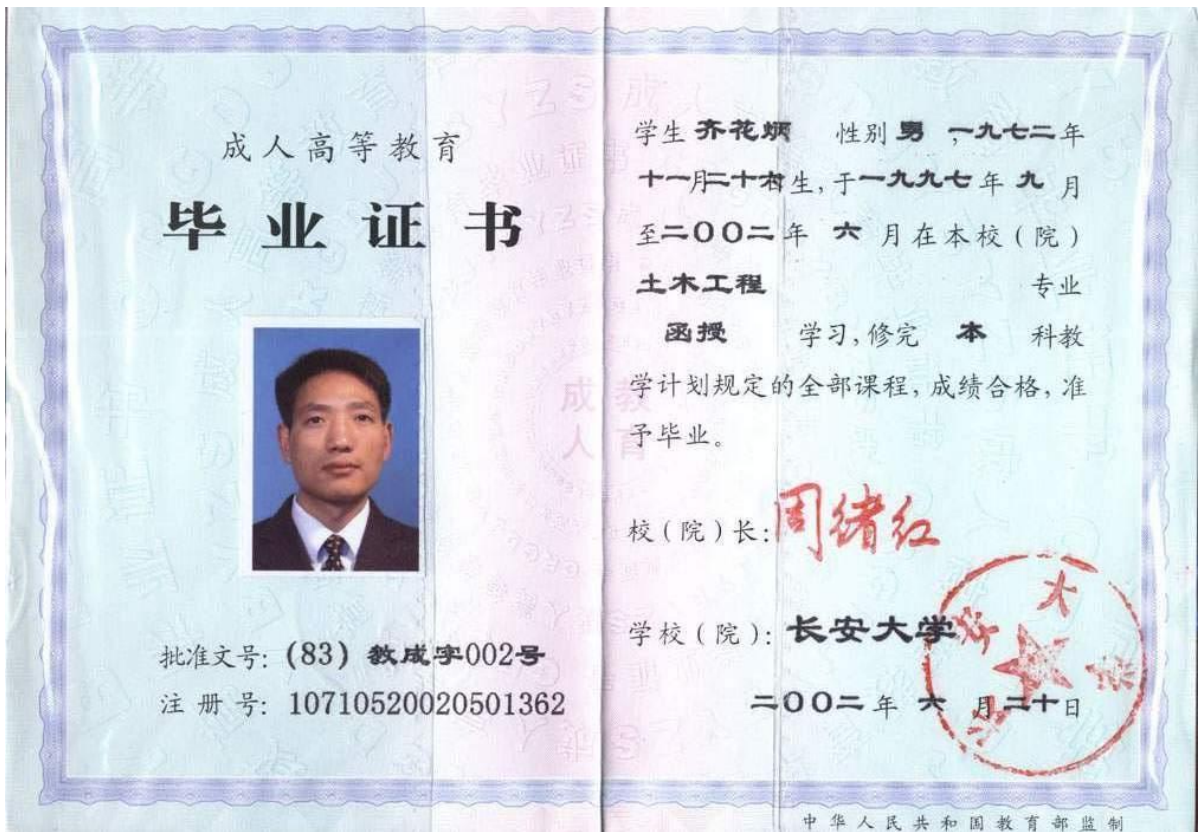 成人高等教育
毕业证书
批准文号: (83) 教成字002号
注册号: 10710520020501362
学生 齐花炳 性别 男 ,一九七二年
十一月二十 生, 于一九九七年 九 月
至二〇〇二年 六 月在本校(院)
土木工程 专业
函授 学习, 修完 本 科教
学计划规定的全部课程, 成绩合格, 准
予毕业。
校(院)长: 周绪红
学校(院): 长安大学
二〇〇二年 六 月二十日
中华人民共和国教育部监制
成教
人育